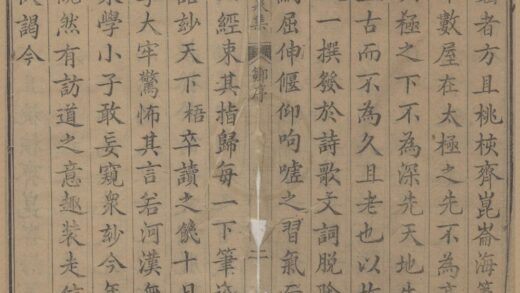 者方且桃梜齊崑崙海
數屋在太極之先不為
極之下不為深先天地生
古而不為久且老也以
一撰發於詩歌文詞脫
屈伸偃仰呴噓之習氣
集
序
二
經束其指歸每一下筆
玅天下梧卒讀之饑十日
大牢驚怖其言若河漢
學小子敢妄窺衆玅今年
然有訪道之意趣裝走
謁今